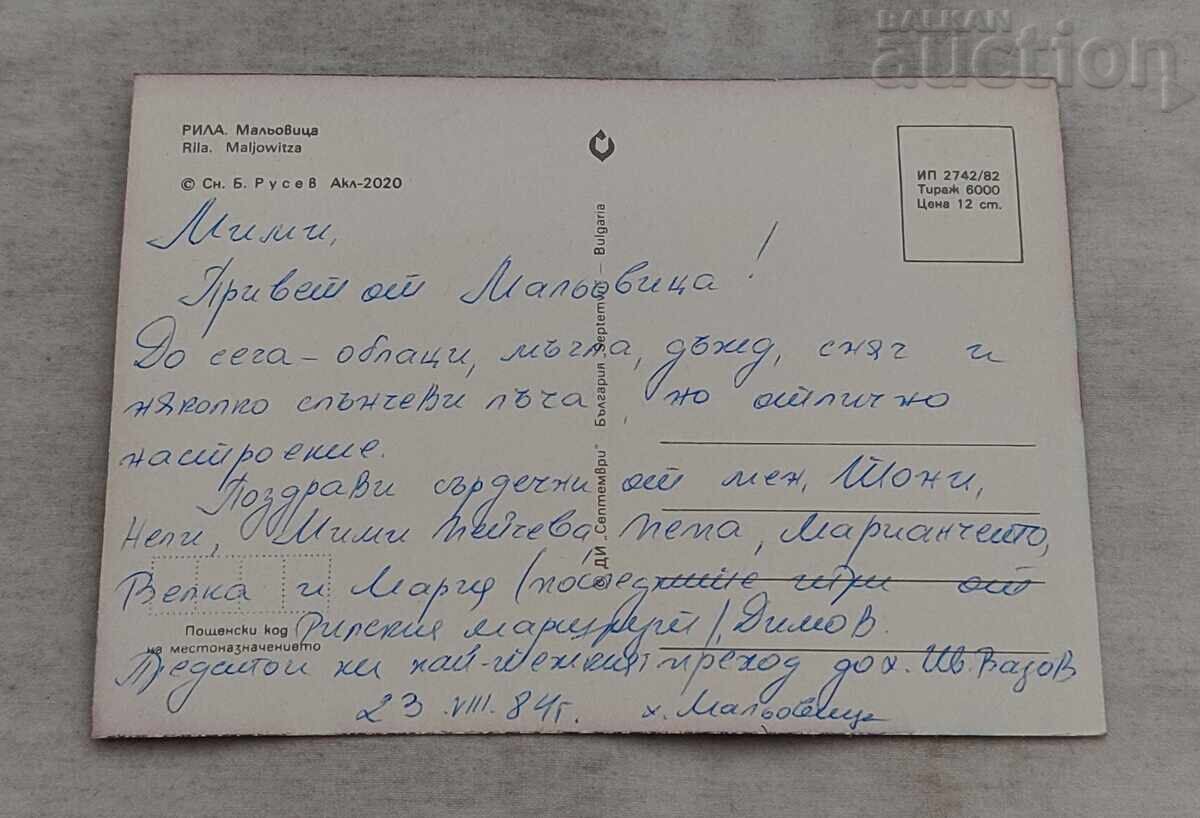 BALKAN
auction
РИЛА. Мальовица
Rila. Maljowitza
© Сн. Б. Русев Акл-2020
ИП 2742/82
Тираж 6000
Цена 12 ст.
ДИ „Септември" България „Septemvri" — Bulgaria
Мими,
Привет от Мальовица!
До сега – облаци, мъгла, дъжд, сняг и
няколко слънчеви лъча, но отлично
настроение.
Поздрави сърдечни от мен, Тони,
Нели, Мими Пейчева, Пепа, Марианчето,
Велка и Мария (последните три от
Рилския маршрут), Димов.
Предстои ни най-тежкият преход до х. Ив. Вазов
23.VIII.84г. х. Мальовица
Пощенски код
на местоназначението